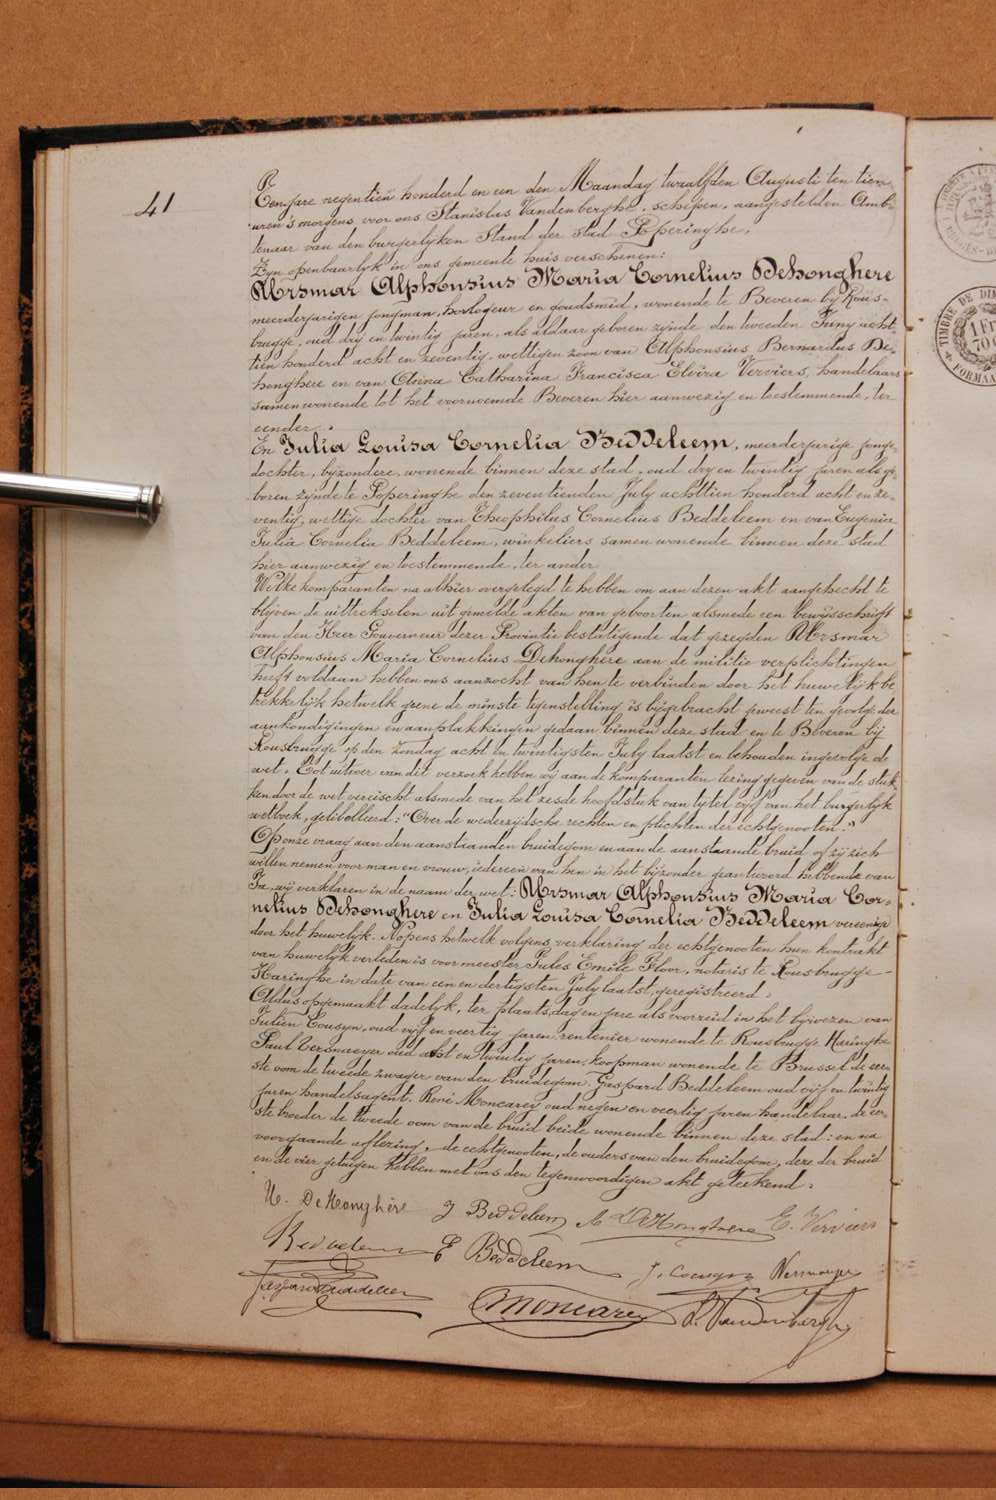 41
Ten jare negentien honderd en een den Maandag twaalfden Augusti ten tien
uren 's morgens voor ons Stanislas Vandenberghe, schepen, aangestelden Amb-
tenaar van den burgerlyken Stand der stad Poperinghe,
Zyn openbaarlyk in ons gemeente huis verschenen:
Ursmar Alphonsius Maria Cornelius Dehonghere
meerderjarigen jongman, horlogeur en goudsmid, wonende te Beveren by Rous-
brugge, oud dry en twintig jaren, als aldaar geboren zynde den tweeden Juny acht
tien honderd acht en zeventig, wettigen zoon van Alphonsius Bernardus De-
honghere en van Anna Catharina Francisca Elvira Verviers, handelaars
samen wonende tot het voornoemde Beveren hier aanwezig en toestemmende, ter
eender.
En Julia Louisa Cornelia Beddeleem, meerderjarige jonge-
dochter, byzondere, wonende binnen deze stad, oud dry en twintig jaren als ge-
boren zynde te Poperinghe den zeventienden July achttien honderd acht en ze-
ventig, wettige dochter van Theophilus Cornelius Beddeleem en van Eugenia
Julia Cornelia Beddeleem, winkeliers samen wonende binnen deze stad
hier aanwezig en toestemmende, ter ander
Welke komparanten na alhier overgelegd te hebben om aan dezen akt aangehecht te
blyven de uittrekselen uit gemelde akten van geboorten alsmede een bewysschrift
van den Heer Gouverneur dezer Provintie bestatigende dat gezegden Ursmar
Alphonsius Maria Cornelius Dehonghere aan de militie verplichtingen
heeft voldaan hebben ons aanzocht van hen te verbinden door het huwelyk be
trekkelyk hetwelk geene de minste tegenstelling is bygebracht geweest ten gevolge der
aankondigingen en aanplakkingen gedaan binnen deze stad en te Beveren by
Rousbrugge op den zondag acht en twintigsten July laatst en behouden ingevolge de
wet. Tot uitvoer van dit verzoek hebben wy aan de komparanten lezing gegeven van de stuk-
ken door de wet vereischt alsmede van het zesde hoofdstuk van tytel vyf van het burgerlyk
wetboek, getitelleerd: "Over de wederzydsche rechten en plichten der echtgenooten."
Op onze vraag aan den aanstaanden bruidegom en aan de aanstaande bruid of zy zich
willen nemen voor man en vrouw, iedereen van hen in het byzonder geantwoord hebbende van
Ja, wy verklaren in de naam der wet: Ursmar Alphonsius Maria Cor-
nelius Dehonghere en Julia Louisa Cornelia Beddeleem vereenigd
door het huwelyk. Nopens hetwelk volgens verklaring der echtgenooten hun kontrakt
van huwelyk verleden is voor meester Jules Emile Floor, notaris te Rousbrugge-
Haringhe in date van een en dertigsten July laatst, geregistreerd.
Aldus opgemaakt dadelyk, ter plaats, dag en jare als voorzeid in het bywezen van
Julien Cousyn, oud vyf en veertig jaren rentenier wonende te Rousbrugge Haringhe
Paul Vermeeyer oud acht en twintig jaren, koopman wonende te Brussel de eer-
ste oom de tweede zwager van den bruidegom. Gaspard Beddeleem oud vyf en twintig
jaren handelsagent. René Moncarey oud negen en veertig jaren handelaar, de eer-
ste broeder de tweede oom van de bruid beide wonende binnen deze stad: en na
voorgaande aflezing, de echtgenooten, de ouders van den bruidegom, deze der bruid
en de vier getuigen hebben met ons den tegenwoordigen akt geteekend.
U. DeHonghère J Beddeleem A DeHonghere E. Verviers
Beddeleem E Beddeleem J. Cousyn Vermeeyer
Gaspard Beddeleem Moncarey S. Vandenberghe
TIMBRE DE DIM
1 Fr
70
FORMA